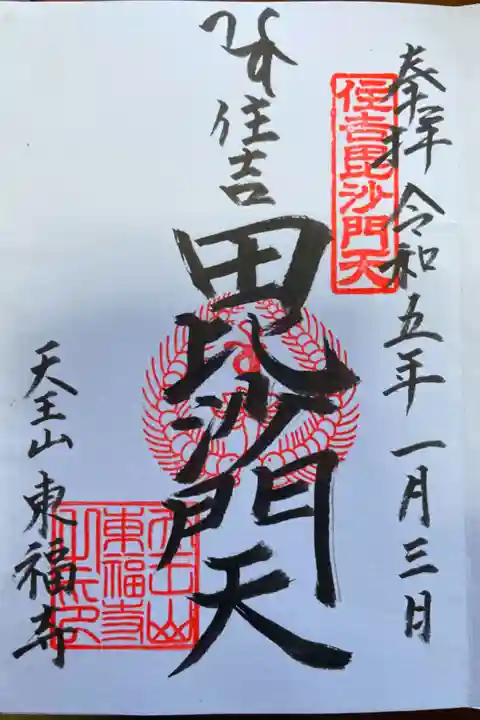 奉拝 令和五年一月三日
住吉毘沙門天
住吉
毘沙門天
天王山 東福寺
天王山
東福寺